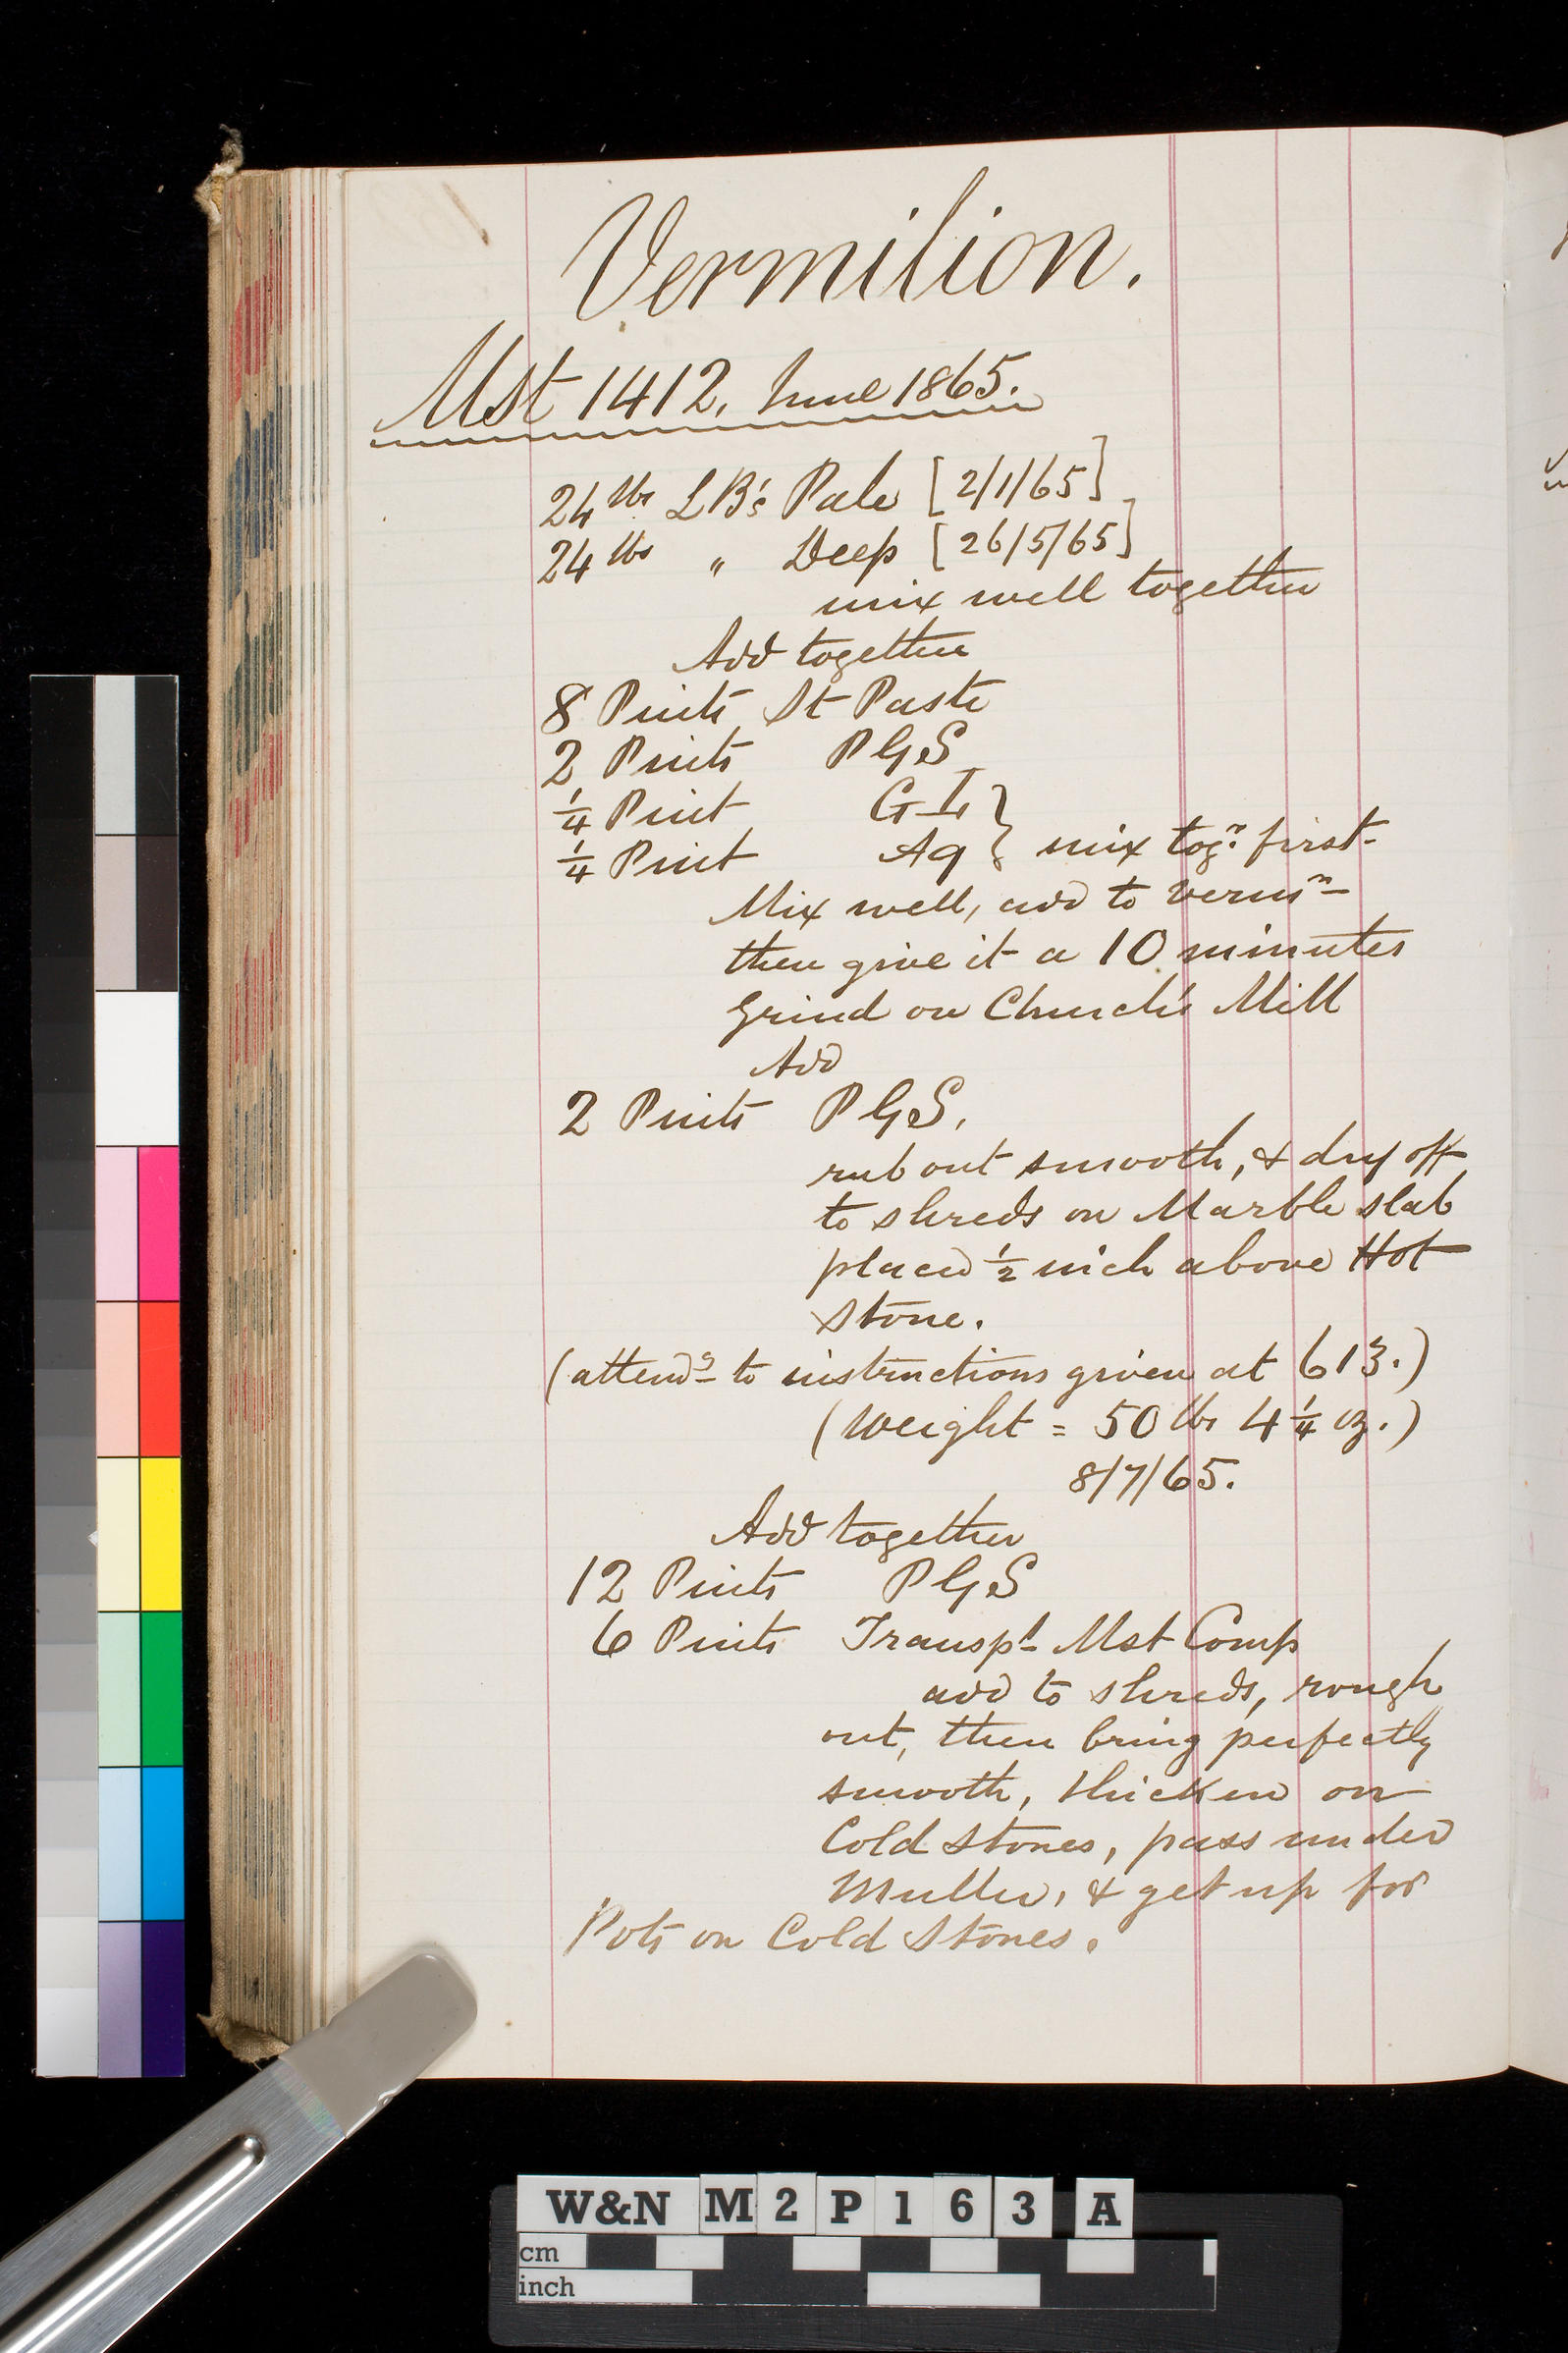 Vermilion.
Mst 1412. June 1865.
24 lbs LB's Pale [2/1/65]
24 lbs " Deep [26/5/65]
mix well together
Add together
8 Pints St Paste
2 Pints PGS
1/4 Pint GI }
1/4 Pint Aq } mix togr. first
Mix well, add to Vermn
then give it a 10 minutes
Grind on Church's Mill
Add
2 Pints PGS.
rub out smooth, & dry off
to shreds on Marble slab
placed 1/2 inch above Hot
Stone.
(attendg to instructions given at 613.)
(Weight = 50 lbs 4 1/4 oz.)
8/7/65.
Add together
12 Pints PGS
6 Pints Transpt Mst Comp
add to shreds, rough
out, then bring perfectly
smooth, thicken on
Cold Stones, pass under
Muller, & get up for
Pots on Cold Stones.
W&N M2P163 A
cm
inch